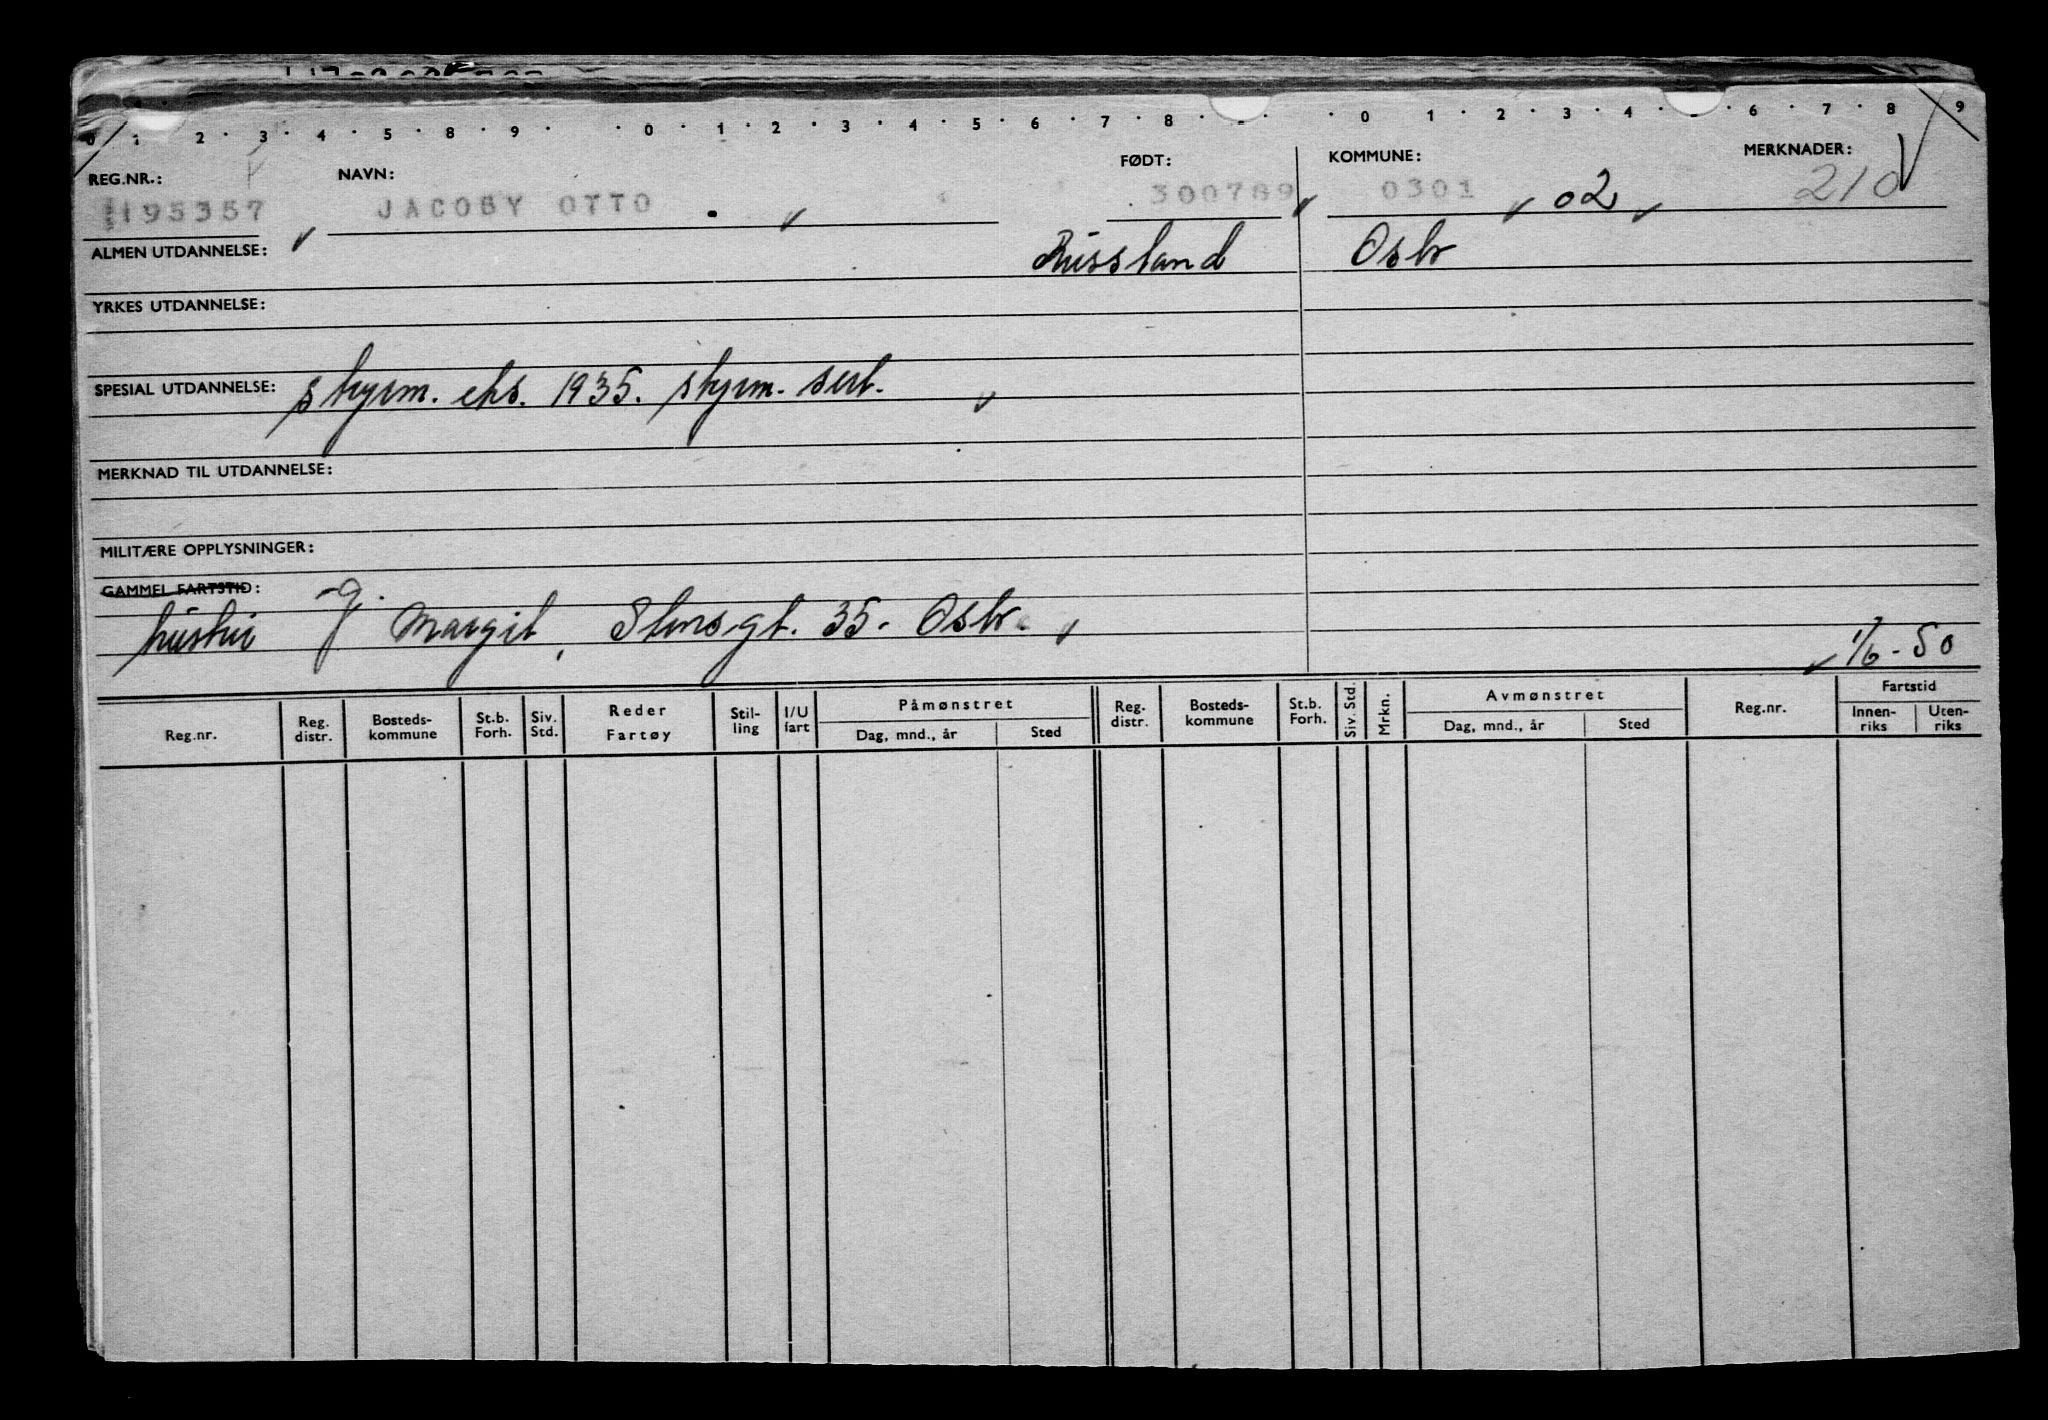 0 1 2 3 4 5 8 9 0 1 2 3 4 5 6 7 8 0 1 2 3 4 6 7 8 9
REG.NR.: NAVN: FØDT: KOMMUNE: MERKNADER:
195357 JACOBY OTTO 300789 0301 02 210
ALMEN UTDANNELSE: Russland Oslo
YRKES UTDANNELSE:
SPESIAL UTDANNELSE: skysm. eks. 1935. skysm. sert.
MERKNAD TIL UTDANNELSE:
MILITÆRE OPPLYSNINGER:
GAMMEL FARTSTID: g.
hustru J Margit, Stensgt. 35. Oslo.
1/6-50
Reg.nr. Reg. distr. Bosteds-kommune St.b. Forh. Siv. Std. Reder Fartøy Stil-ling I/U fart Påmønstret Dag, mnd., år Sted Reg. distr. Bosteds-kommune St.b. Forh. Siv. Std. Mrkn. Avmønstret Dag, mnd., år Sted Reg.nr. Fartstid Innen-riks Uten-riks